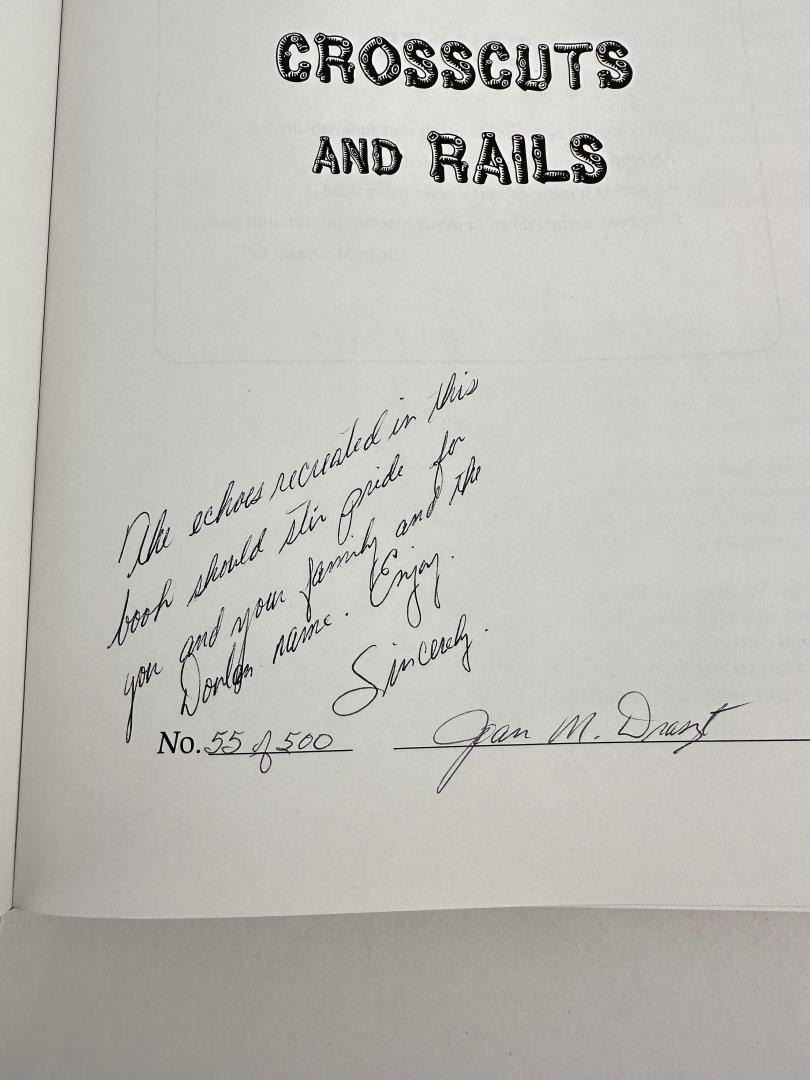 CROSSCUTS
AND RAILS
The echoes recreated in this
book should stir pride for
you and your family and the
Donlan name. Enjoy.
Sincerely.
No. 55 of 500
Jean M. Draszt